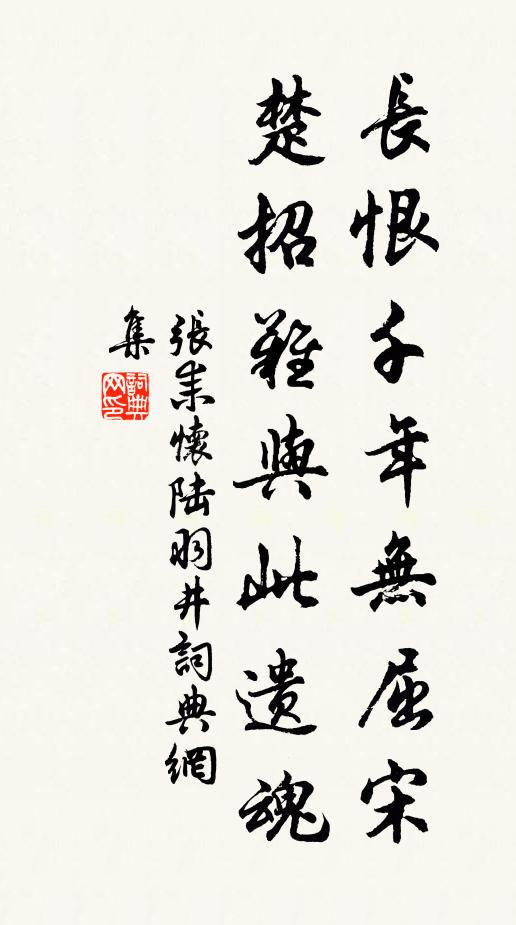 長恨千年無屈宋
楚招難與此遺魂
張耒懷陸羽井詞典網
集
詞典
网印